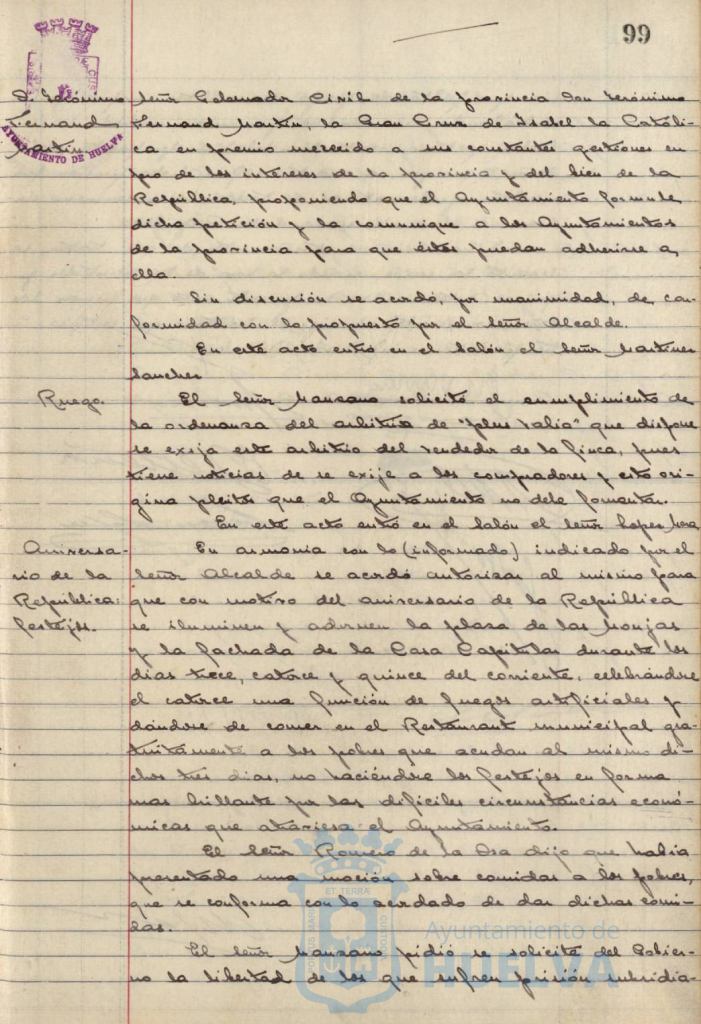 99
D. Jerónimo
Fernand
Martin
AYUNTAMIENTO DE HUELVA
señor Gobernador Civil de la provincia Don Jerónimo
Fernand Martin, la Gran Cruz de Isabel la Católi-
ca en premio merecido a sus constantes gestiones en
pro de los intereses de la provincia y del bien de la
República, proponiendo que el Ayuntamiento formule
dicha petición y la comunique a los Ayuntamientos
de la provincia para que éstos puedan adherirse a
ella.
Sin discusión se acordó, por unanimidad, de con-
formidad con lo propuesto por el señor Alcalde.
En este acto entró en el salón el señor Martinez
Sanchez
Ruego.
El señor Manzano solicitó el cumplimiento de
la ordenanza del arbitrio de "plus valia" que dispone
se exija este arbitrio del vendedor de la finca, pues
tiene noticias de se exije a los compradores y esto ori-
gina pleitos que el Ayuntamiento no debe fomentar.
En este acto entró en el salón el señor Lopez
Aniversa-
rio de la
República:
festejos.
En armonia con lo (informado) indicado por el
señor Alcalde se acordó autorizar al mismo para
que con motivo del aniversario de la República
se iluminen y adornen la plaza de las Monjas
y la fachada de la Casa Capitular durante los
dias trece, catorce y quince del corriente, celebrándose
el catorce una función de fuegos artificiales y
dándose de comer en el Restaurant municipal gra-
tuitamente a los pobres que acudan al mismo di-
chos tres dias, no haciéndose los festejos en forma
mas brillante por las dificiles circunstancias econó-
micas que atraviesa el Ayuntamiento.
El señor Romero de la Osa dijo que habia
presentado una moción sobre comidas a los pobres,
que se conforma con lo acordado de dar dichas comi-
das.
El señor Manzano pidió se solicite del Gobier-
no la libertad de los que sufren prisión subsidia-
Ayuntamiento de
HUELVA